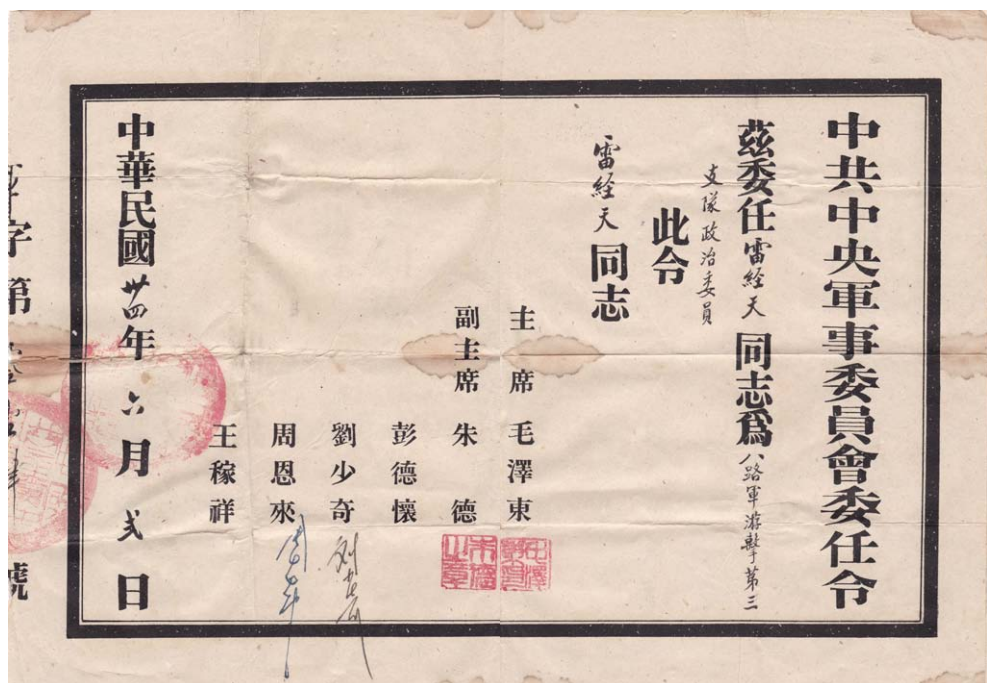 中共中央軍事委員會委任令
茲委任雷経天同志爲八路軍游擊第三
支隊政治委員
此令
雷経天同志
主席毛澤東
副主席朱德
彭德懷
劉少奇
周恩來
王稼祥
中華民國卅四年六月弍日
字第
號